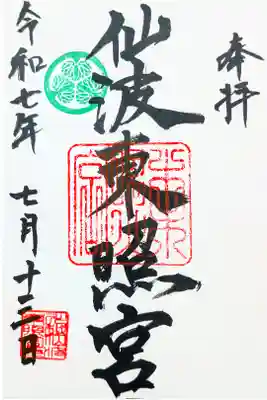 奉拝
仙波東照宮
令和七年 七月十二日